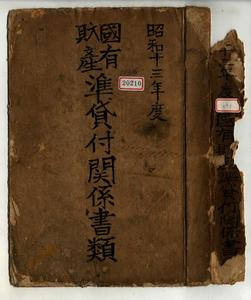 昭和十三年度
國有財産準貸付関係書類
20210